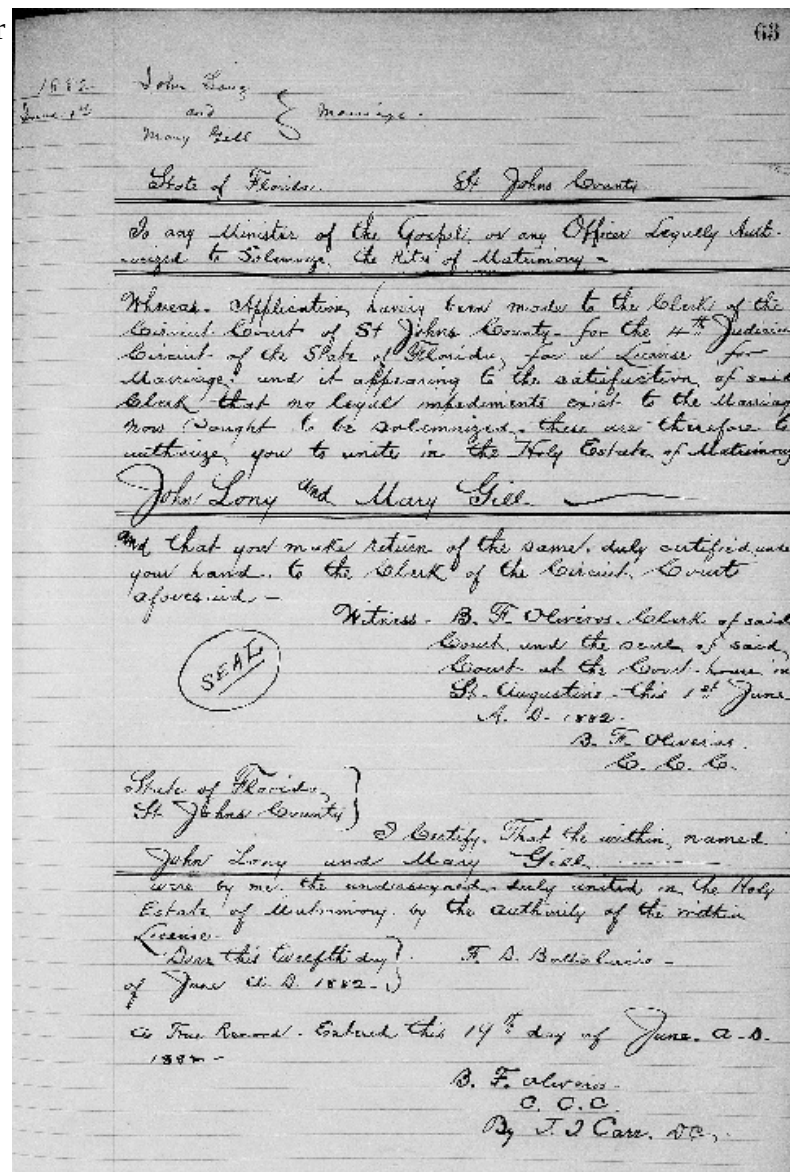 r
63
1882 John Long
June 1st and } Marriage.
Mary Gill
State of Florida. St Johns County
To any Minister of the Gospel, or any Officer Legally Auth-
orized to Solemnize, the Rites of Matrimony -
Whereas. Application, having been made to the Clerk of the
Circuit Court of St Johns County - for the 4th Judicial
Circuit of the State of Florida, for a License for
Marriage, and it appearing to the satisfaction, of said
Clerk that no legal impediments exist to the Marriage
now Sought to be solemnized - these are therefore to
authorize, you to unite in the Holy Estate, of Matrimony
John Long and Mary Gill
and that you make return of the same, duly certified, under
your hand, to the Clerk of the Circuit Court
aforesaid -
Witness - B. F. Oliveros. Clerk of said
Court and the seal of said
SEAL
Court at the Court-house in
St. Augustine - this 1st June
A. D. 1882.
B. F. Oliveros.
C. C. C.
State of Florida, }
St Johns County }
I Certify, That the within, named
John Long and Mary Gill
were by me the undersigned, duly united in the Holy
Estate of Matrimony by the authority of the within
License.
Done this twelfth day }
of June A. D. 1882 - } F. D.
A True Record - Entered this 14th day of June. A. D.
1882 -
B. F. Oliveros.
C. C. C.
By J. J Carr. DC.